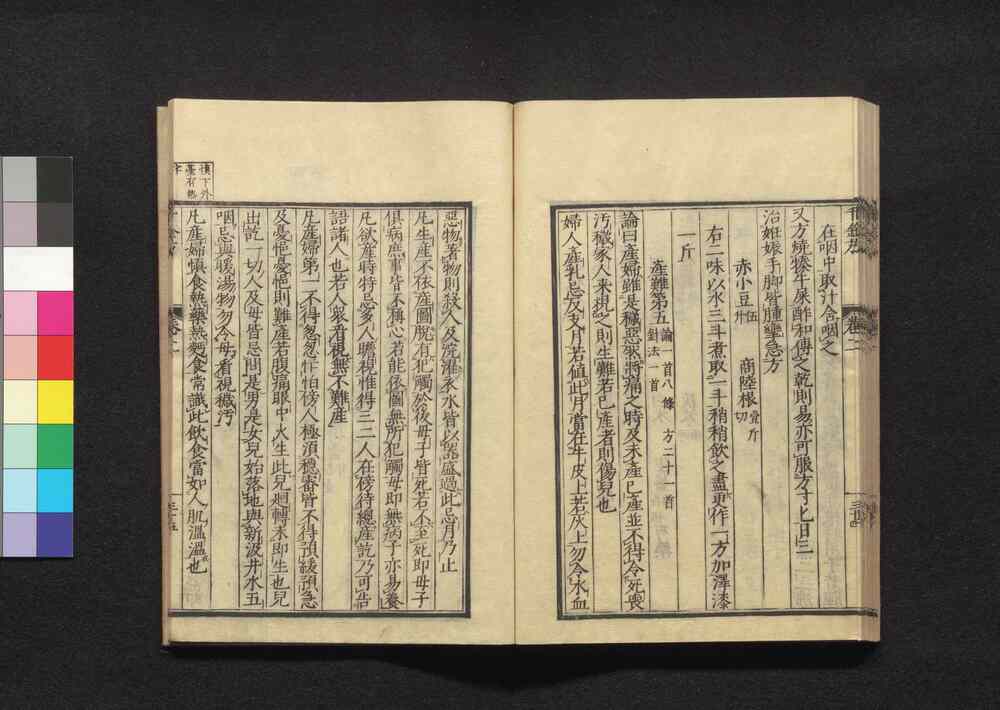 在咽中取汁含咽之
又方燒犢牛屎酢和傅之乾則易亦可服方寸匕日三
治妊娠手脚皆腫攣急方
赤小豆伍升 商陸根壹斤切
右二味以水三斗煮取一斗稍稍飲之盡更作一方加澤漆
一斤
產難第五論一首八條 方二十一首
針法一首
論曰產婦雖是穢惡然將痛之時及未產已產並不得令死喪
汚穢家人來視之則生難若已產者則傷兒也
婦人產乳忌反支月若値此月當在牛皮上若灰上勿令水血
惡物著物則殺人及浣濯衣水皆以器盛過此忌月乃止
凡生產不依產圖脫有犯觸於後母子皆死若不至死即母子
俱病庶事皆不稱心若能依圖無所犯觸母即無病子亦易養
凡欲產時特忌多人瞻視惟得三二人在傍待總產訖乃可告
語諸人也若人衆看視無不難產
凡產婦第一不得忽忽忙怕傍人極須穩審皆不得預緩預急
及憂悒憂悒則難產若腹痛眼中火生此兒廻轉未即生也兒
出訖一切人及母皆忌問是男是女兒始落地與新汲井水五
咽忌與暖湯物勿令母看視穢汚
凡產婦愼食熱藥熱麵食常識此飲食當如人肌溫溫也
愼下外
臺有熱
字
卷二
三十五